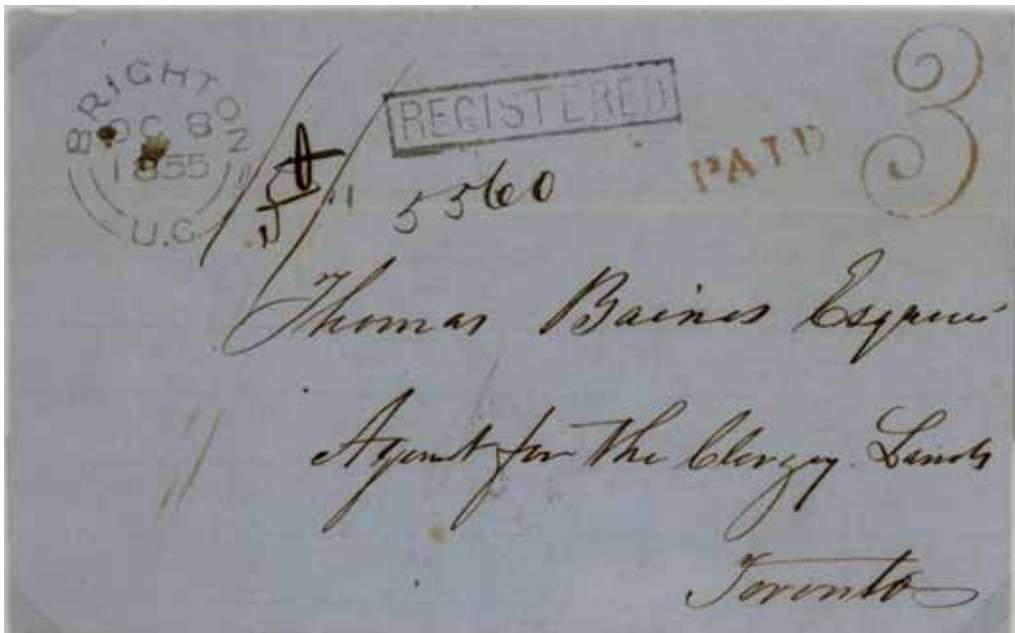 BRIGHTON
OC 8
1855
U.C.
REGISTERED
PAID 3
5560
Thomas Baines Esquire
Agent for the Clergy Lands
Toronto